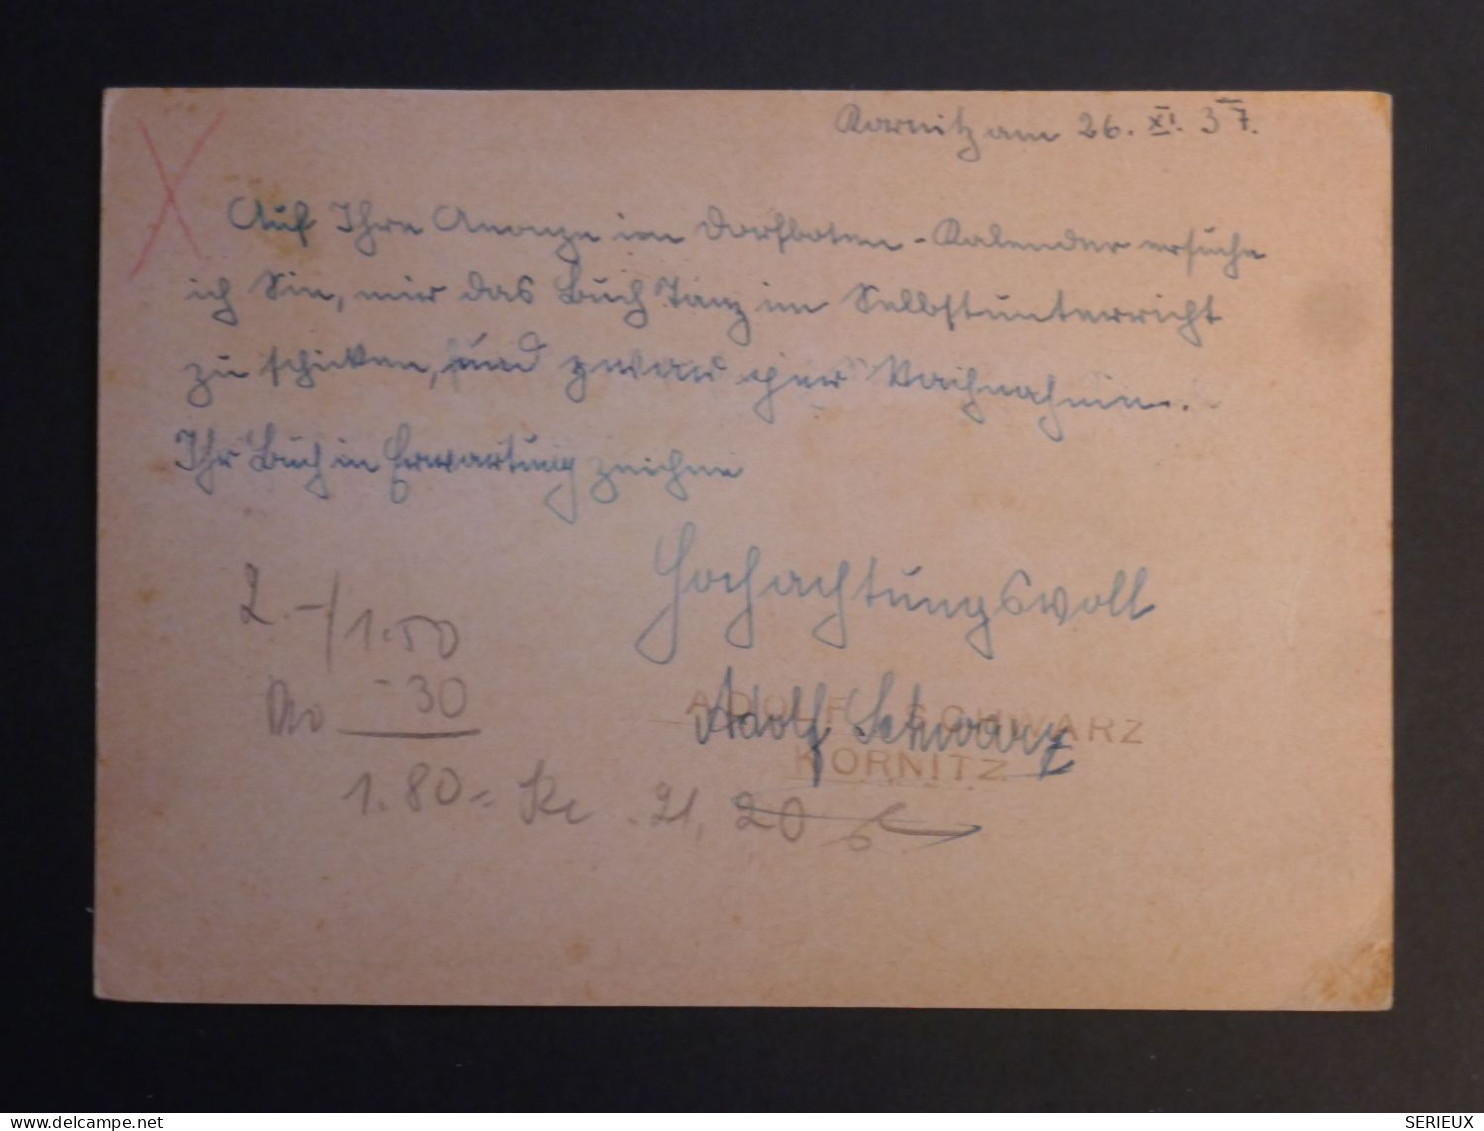 Kornitz am 26. XI. 37.
Auf Ihre Anonze im Dorfboten-Kalender ersuche
ich Sie, mir das Buch Tanz im Selbstunterricht
zu schiken, und zwar per Nachnahme.
Ihr Buch in Erwartung zeichne
Hochachtungsvoll
2.-/1.50
-30
1.80 = Kc 21,20
ADOLF SCHWARZ
KORNITZ
Adolf Schwarz
SERIEUX